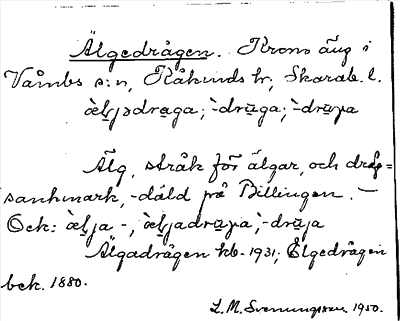 Älgedrågen. Krono äng i
Våmbs s:n, Kåkinds hd, Skarab. l.
àeljədraga; -drūga; -drūja
Älg, stråk för älgar, och dråg=
sankmark, -däld på Billingen. –
Ock: àelja -, àeljadrūja, -drūja
Älgadrågen kb. 1931; Elgedrågen
bek. 1880.
L. M. Svenungsson. 1950.